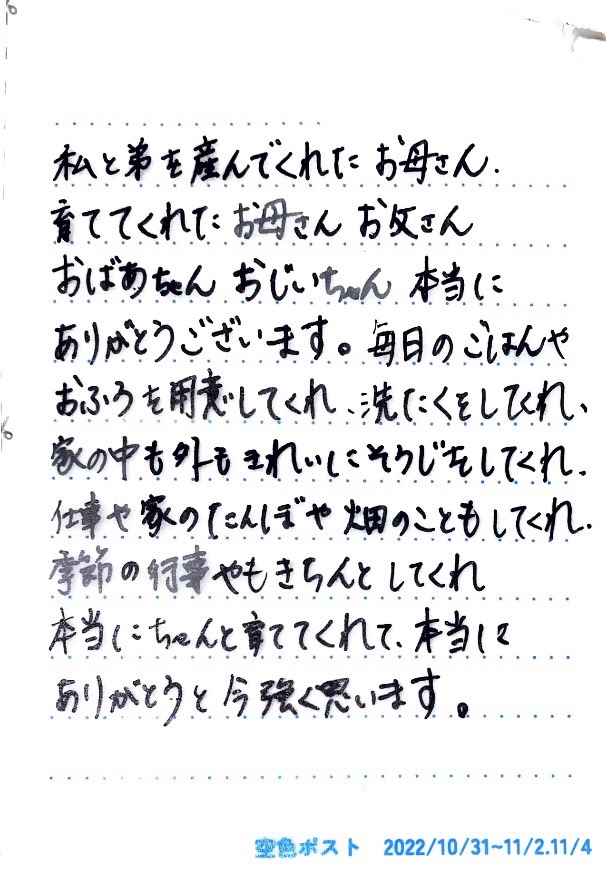 私と弟を産んでくれた お母さん.
育ててくれた お母さん お父さん
おばあちゃん おじいちゃん 本当に
ありがとうございます。毎日のごはんや
おふろを用意してくれ、洗たくをしてくれ、
家の中も外もきれいにそうじをしてくれ.
仕事や家のたんぼや畑のこともしてくれ.
季節の行事やもきちんとしてくれ
本当にちゃんと育ててくれて、本当に
ありがとうと今強く思います。
空色ポスト 2022/10/31~11/2.11/4